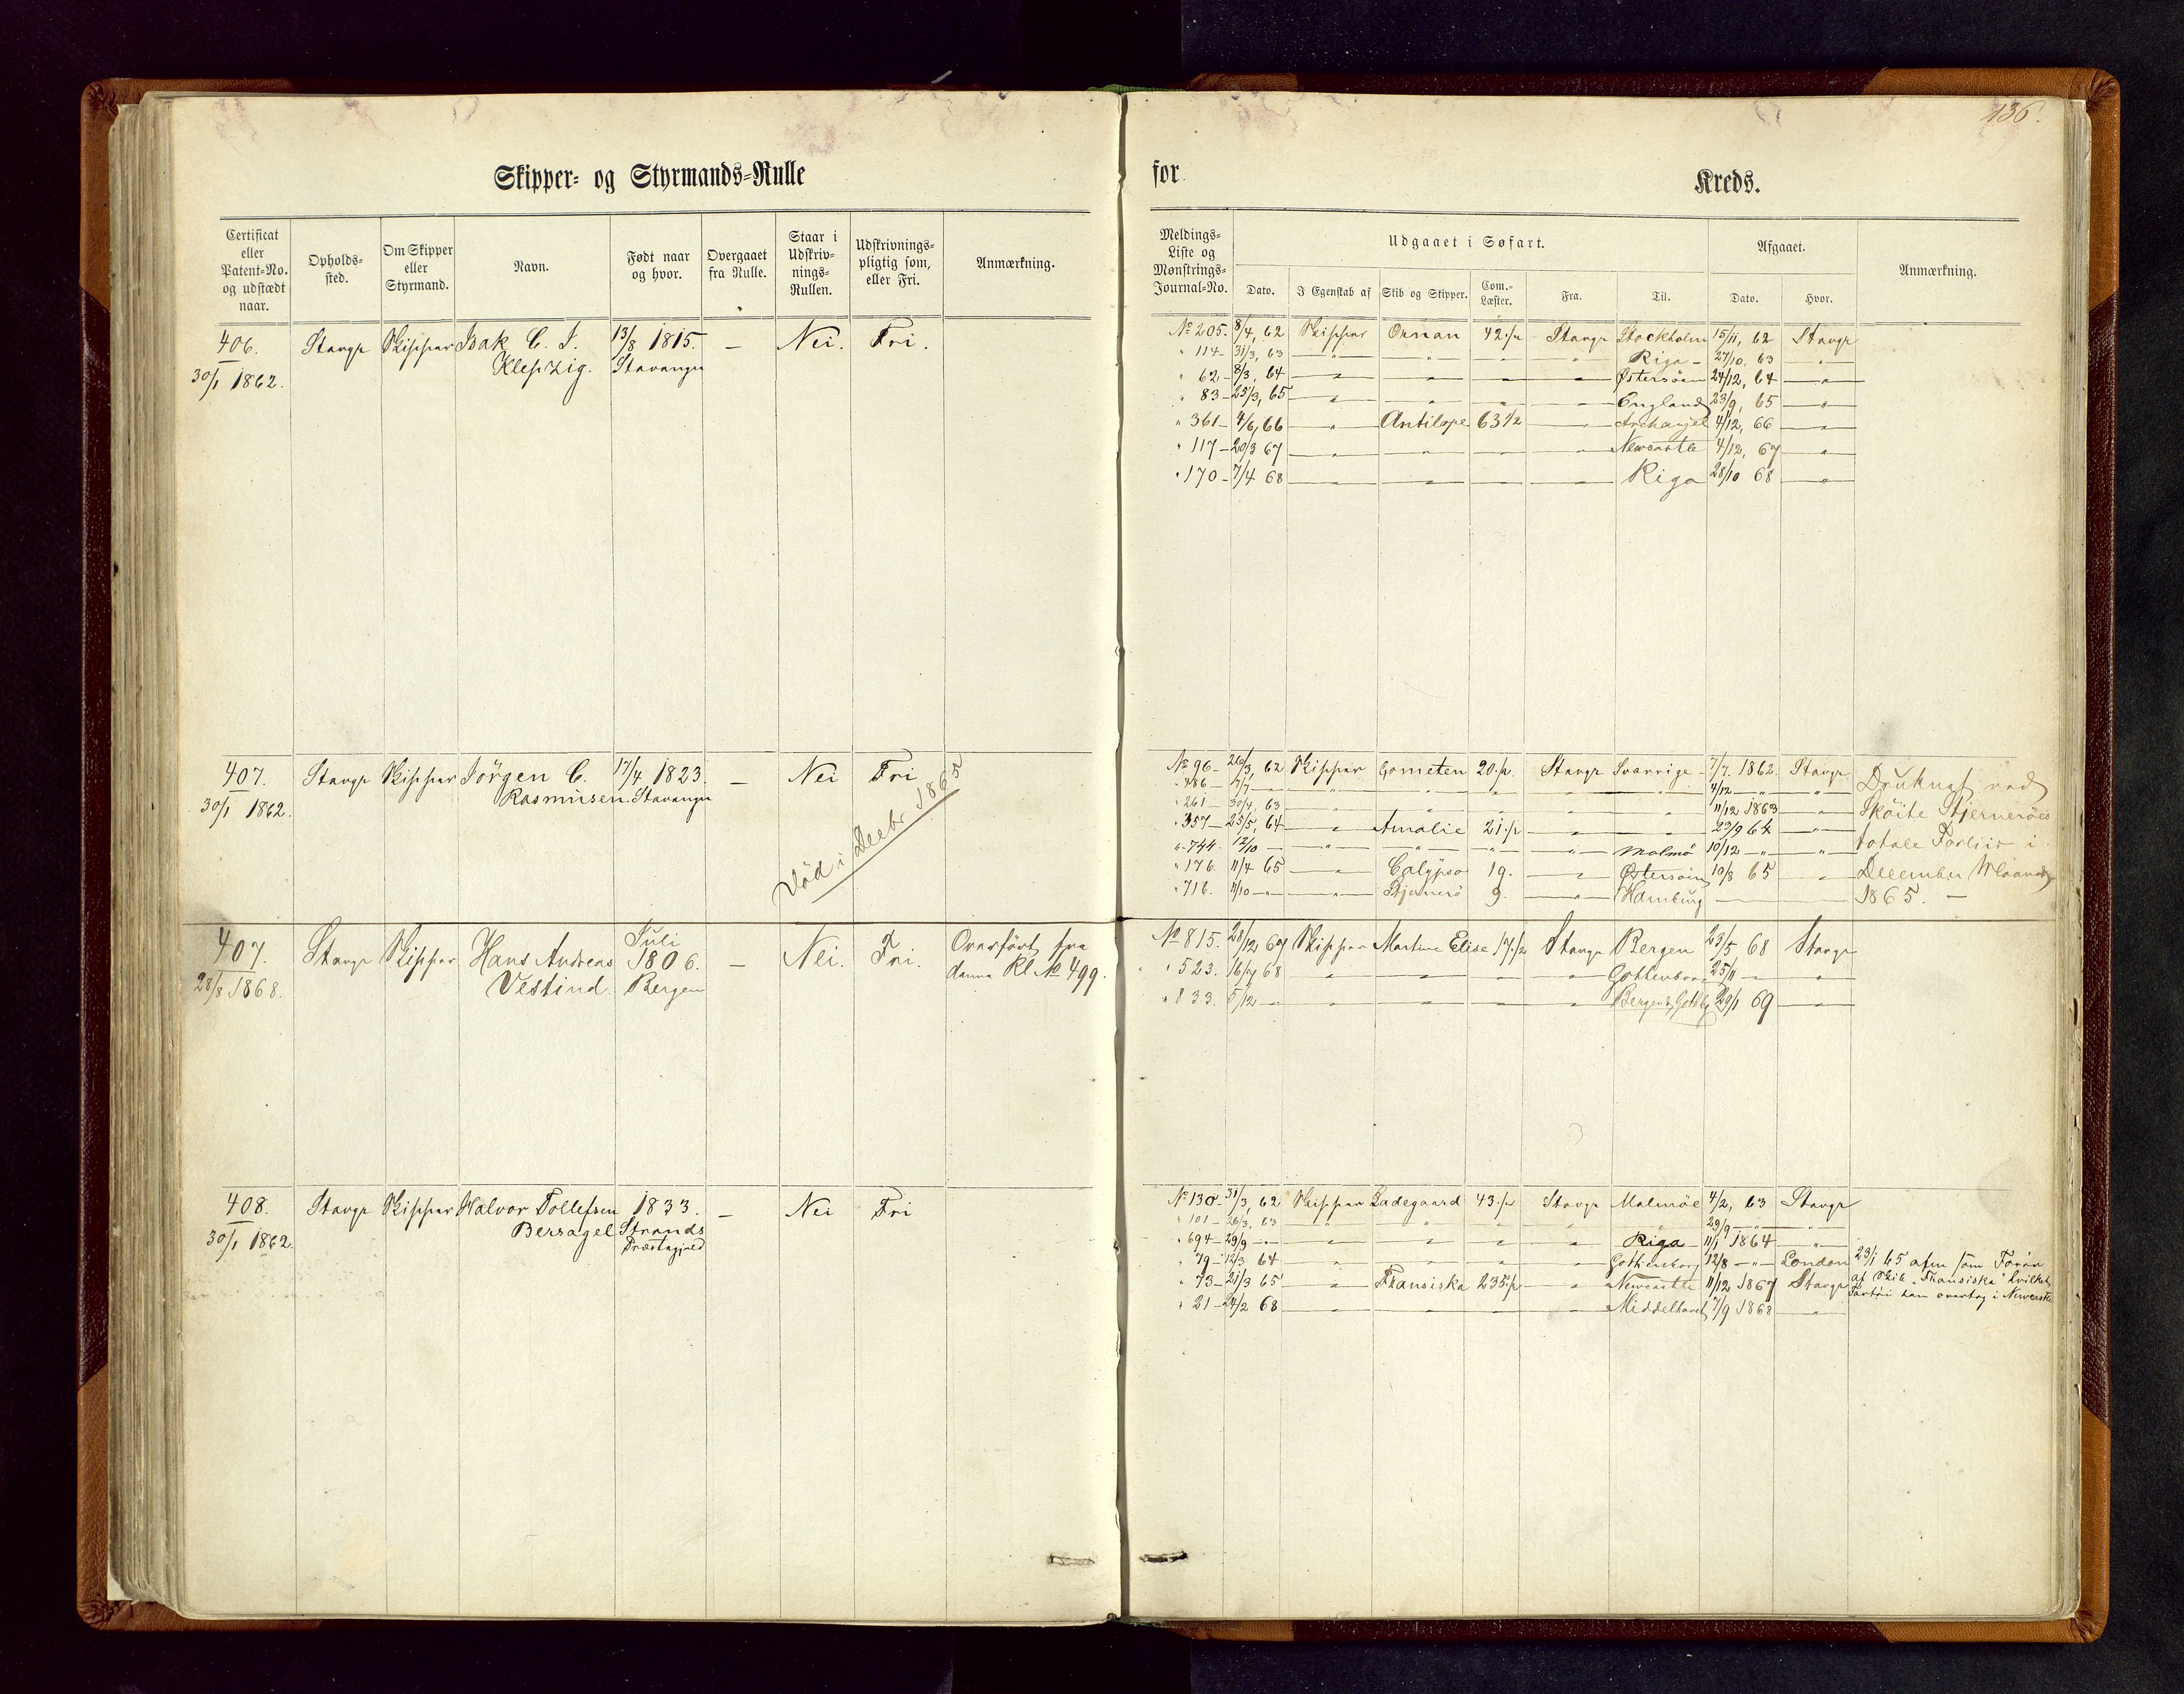 136.
Skipper- og Styrmands-Rulle
for
Kreds.
Certificat eller Patent-No. og udstædt naar.
Opholds-sted.
Om Skipper eller Styrmand.
Navn.
Født naar og hvor.
Overgaaet fra Rulle.
Staar i Udskriv-nings-Rullen.
Udskrivnings-pligtig som, eller Fri.
Anmærkning.
Meldings-Liste og Mønstrings-Journal-No.
Udgaaet i Søfart.
Dato.
I Egenskab af
Skib og Skipper.
Com.-Læster.
Fra.
Til.
Afgaaet.
Dato.
Hvor.
Anmærkning.
406. Stavgr Skipper Isak C. I. 13/8 1815. — Nei. Fri.
30/1 1862. Klepzig. Stavanger
No 205. 8/4, 62 Skipper Ornan 42 1/2 Stavgr Stockholm 15/11, 62 Stavgr
" 114 - 31/3, 63 " " " Riga - 27/10, 63 "
" 62 - 8/3, 64 " " " " Østersøen 24/12, 64 "
" 83 - 25/3, 65 " " " " England 23/9, 65 "
" 361 - 4/6, 66 " Antilope 63 1/2 " Archangel 4/12, 66 "
" 117 - 20/3 67 " " " " Newcastle 4/12, 67 "
" 170 - 7/4 68 " " " " Riga 28/10 68 "
407. Stavgr Skipper Jörgen C. 17/4 1823. — Nei Fri
30/1 1862. Rasmusen. Stavanger
Död i Decbr 1865
No 96 - 26/3, 62 Skipper Cometen 20 1/2 Stavgr Sverrige - 7/7. 1862. Stavgr
" 486 - 7/7 - " " " " " 4/12 - " "
" 261 - 30/4, 63 " " " " " 11/12 1863 "
" 357 - 25/5, 64 " Amalie 21 1/2 " " 29/9 64 "
" 744. 12/10 - " " " " Malmö 10/12 - " "
" 176. 11/4 65 " Calypso 19. " Østersøen 10/8 65 "
" 716. 11/10 - " Stjernerö 9. " Hamburg
Druknet ved
Sköite Stjerneröes
totale Forliis i
December Maaned
1865. -
407. Stavgr Skipper Hans Andreas Juli 1806. — Nei. Fri.
28/8 1868. Vestind. Bergen
Overfört fra
denne Rl. No 499.
No 815. 28/12 67 Skipper Martine Elise 17 1/2 Stavgr Bergen 23/5, 68 Stavgr
" 523. 16/7 68 " " " " Gottenborg 25/11 - "
" 833. 5/12 - " " " " Bergen & Gottbg 29/1 69 "
408. Stavgr Skipper Halvor Tollefsen 1833. — Nei Fri
30/1 1862. Bersagel Strands
Præstegjeld
No 130. 31/3, 62 Skipper Ladegaard 43 1/2 Stavgr Malmöe 4/2, 63 Stavgr
" 101 - 26/3. 63 " " " " " 29/9 - " "
" 694 - 29/9 - " " " " Riga 11/1 1864 "
" 79 - 12/3 64 " " " " Gothenborg 12/8 - " London
" 73 - 21/3 65 " Fransiska 235 1/2 " Newcastle 11/12 1867 Stavgr
" 21 - 24/2 68 " " " " Middelhavet 7/9 1868 "
23/1 65 afm som Förer
af Skib "Fransiska" hvilket
Fartöi han overtog i Newcastle